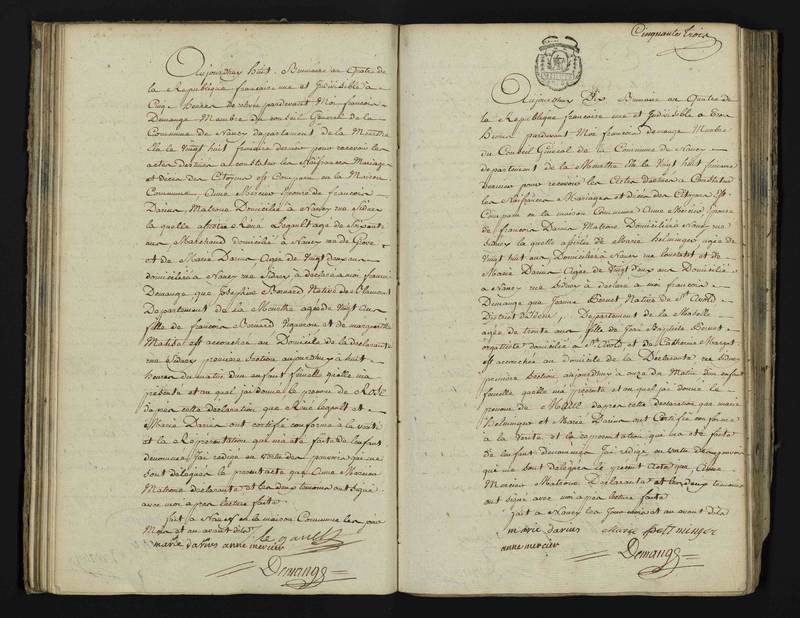 Aujourdhuy huit Brumaire an Quatre de
la Republique francaise une et Indivisible à
Cinq heures de relevée pardevant Moi francois
Demange Membre du conseil Général de la
Commune de Nancy departement de la Meurthe
Elu le Vingt huit frimaire dernier pour recevoir les
actes destinés a constater les Naissances Mariages
et décès des Citoyens est Comparue en la Maison
Commune Anne Mercier Epouse de francois
Darius Matrone Domiciliée à Nancy rue Sidney
la quelle assistée de René Legault agé de
ans Marchand domicilié à Nancy rue de Greve
et de Marie Darius Agée de Vingt deux ans
domiciliée à Nancy rue Sidney à déclaré a moi francois
Demange que Josephine Bernard Native de Blamont
Departement de la Meurthe agée de Vingt ans
fille de francois Bernard Vigneron et de marguerite
est accouchée au Domicile de la déclarante
rue Sidney premiere section aujourdhuy à huit
heures du matin d'un enfant femelle quelle m'a
présenté et au quel j'ai donné le prenom de ROSE
d'apres cette déclaration que René Legault et
Marie Darius ont certifié conforme à la vérité
et la Représentation qui m'a été faite de l'enfant
denommé J'ai rédigé en vertu des pouvoirs qui me
sont délégués le present acte que Anne Mercier
Matrone déclarante et les deux temoins ont signé
avec moi apres lecture faite
fait à Nancy en la maison Commune les jour
Mois et an avant dits
marie darius anne mercier le gault
Demange
Cinquante trois
Aujourdhuy Dix Brumaire an Quatre de
la Republique francaise une et Indivisible a Trois
heures pardevant Moi francois demange Membre
du Conseil Général de la Commune de Nancy
departement de la Meurthe Elu le Vingt huit frimaire
dernier pour recevoir les Actes Destinés a Constater
les Naissances Mariages et décès des Citoyens Est
Comparue en la maison Commune Anne Mercier Epouse
de francois Darius Matrone Domiciliée à Nancy rue
Sidney la quelle assistée de Marie helminger agée de
Vingt huit ans Domiciliée à Nancy rue et de
Marie Darius Agée de Vingt deux ans Domiciliée
a Nancy rue Sidney a déclaré a moi francois
Demange que Jeanne Bouet Native de St Avold
District Departement de la Moselle
agée de trente ans fille de Jean Baptiste Bouet
organiste domicilié a St Avold et de Catherine
est accouchée au domicile de la Déclarante rue Sidney
premiere section aujourdhuy à onze du Matin d'un enfant
femelle quelle m'a présenté et au quel jai donné le
prenom de MARIE d'apres cette declaration que marie
helminger et Marie Darius ont Certifié conforme
à la Verité et la représentation qui m'a été faite
de l'enfant denommé Jai rédigé en vertu des pouvoirs
qui me sont délégués le present acte que Anne
Mercier Matrone Déclarante et les deux temoins
ont signé avec moi apres lecture faite
fait à Nancy les jour mois et an avant dits
marie darius Marie helminger
anne mercier
Demange